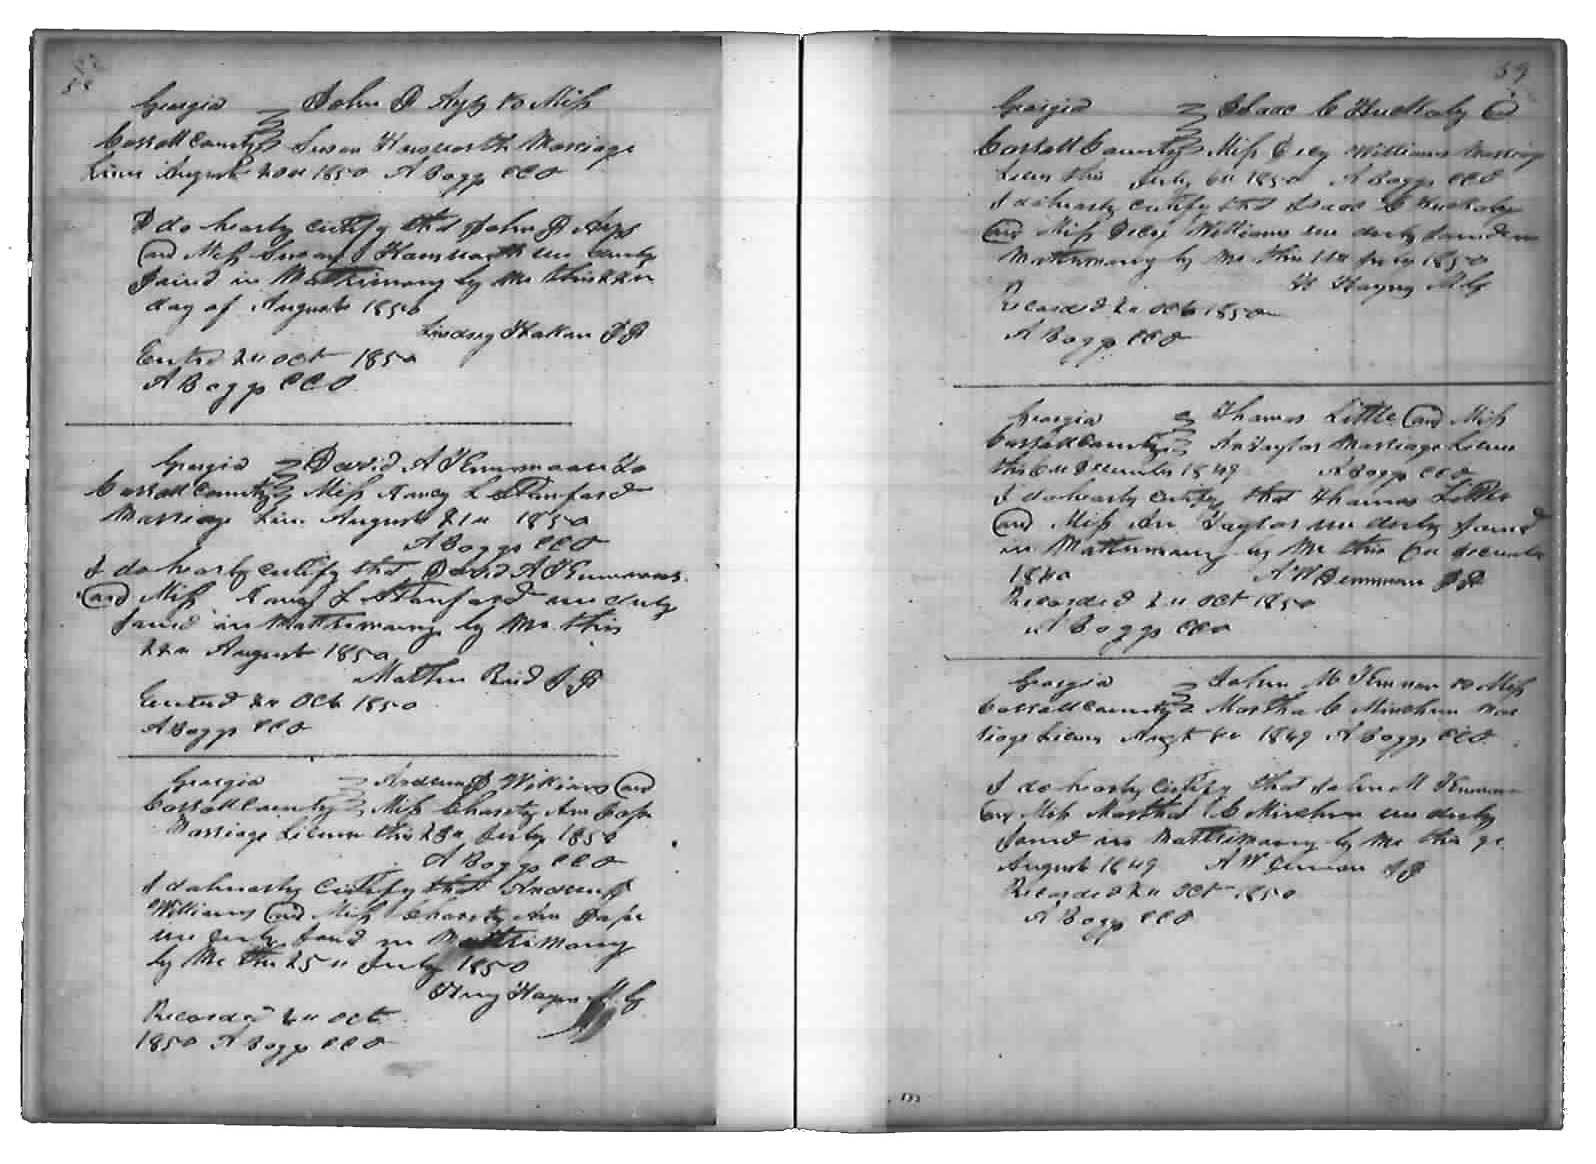 58
Georgia John D Ayrs to Miss
Carroll County Susan Hansworth Marriage
Licns August 20th 1850 A Boggs CCO
I do hearby certify that John D Ayrs
and Miss Susan Hansworth wer duly
Joined in Matthrimony by me this 22n
day of August 1850
Lindsey JP
Entrd 2n Oct 1850
A Boggs CCO
Georgia David A to
Carroll County Miss Nancy L Stanford
Marriage Licn August 21n 1850
A Boggs CCO
I do hearby certify that David A
and Miss Nancy L Stanford wer duly
Joined in Matthrimony by Me this
22n August 1850
Mathew Reid JP
Entrd 2n Oct 1850
A Boggs CCO
Georgia Andrew J Williams and
Carroll County Miss Charity Ann
Marriage Licnse this 23n July 1850
A Boggs CCO
I do hearby certify that Andrew J
Williams and Miss Charity Ann
wer duly Joind in Matthrimony
by Me this 25n July 1850
Henry Haynes M G
Recorded 2n Oct
1850 A Boggs CCO
59
Georgia Isaac C Huckaby and
Carroll County Miss Williams Marriag
Licns this July 6n 1850 A Boggs CCO
I do hearby certify that Isaac C Huckaby
and Miss Williams wer duly Joined in
Mathrimony by Me this 11n July 1850
H Haynes M G
Recorded 2n Oct 1850
A Boggs CCO
Georgia Thomas Little and Miss
Carroll County An Taylor Marriage Licnse
this 6n December 1849 A Boggs CCO
I do hearby certify that Thomas Little
and Miss An Taylor wer duly Joined
in Matthrimony by Me this 6n December
A W JP
Recorded 2n Oct 1850
A Boggs CCO
Georgia John M to Miss
Carroll County Martha C Minchew Mar
riage Licens Augst 8n 1849 A Boggs CCO
I do hearby certify that John M
and Miss Martha C Minchew wer duly
Joined in Matthrimony by Me this 9
August 1849 A W JP
Recorded 2n Oct 1850
A Boggs CCO